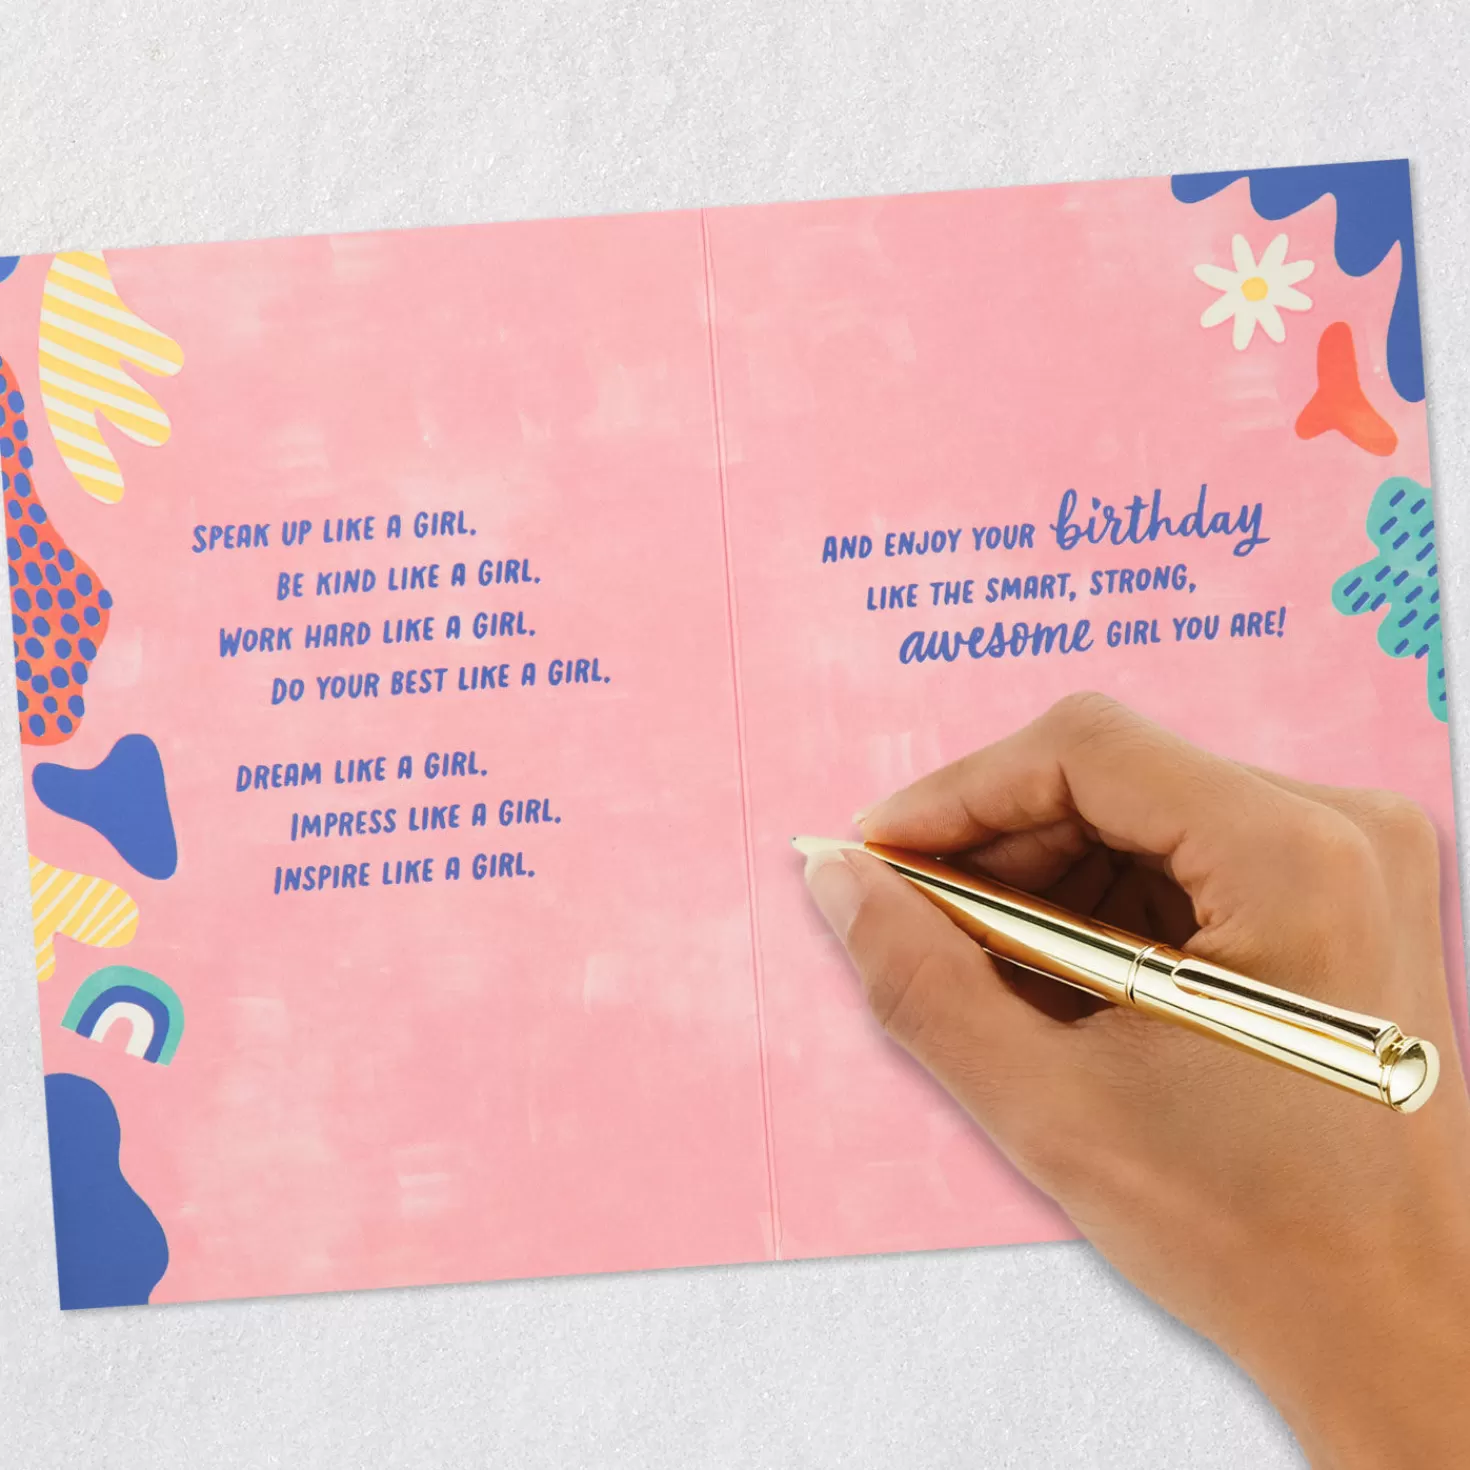 SPEAK UP LIKE A GIRL.
BE KIND LIKE A GIRL.
WORK HARD LIKE A GIRL.
DO YOUR BEST LIKE A GIRL.
DREAM LIKE A GIRL.
IMPRESS LIKE A GIRL.
INSPIRE LIKE A GIRL.
AND ENJOY YOUR birthday
LIKE THE SMART, STRONG,
awesome GIRL YOU ARE!